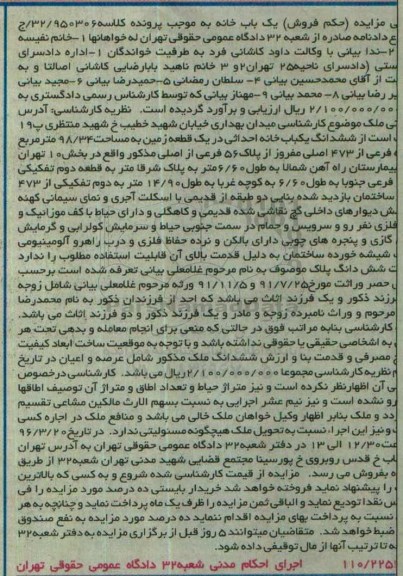 ی مزایده (حکم فروش) یک باب خانه به موجب پرونده کلاسه ۳۲/۹۵۰۳۰۶/ج
دادنامه صادره از شعبه ۳۲ دادگاه عمومی حقوقی تهران له خواهانها ۱-خانم نفیسه
۲-ندا بیاتی با وکالت داود کاشانی فرد به طرفیت خواندگان ۱-اداره دادسرای
ستی (دادسرای ناحیه ۲۵ تهران ۲و ۳ خانم ناهید بابارضایی کاشانی اصالتا و به
ت از آقای محمدحسین بیانی ۴- سلطان رمضانی ۵-حمیدرضا بیانی ۶-مجید بیانی
یر رضا بیانی ۸- محمد بیانی ۹-مهناز بیانی که توسط کارشناس رسمی دادگستری به
۲/۱۰۰/۰۰۰/۰۰۰ ریال ارزیابی و برآورد گردیده است. نظریه کارشناسی: آدرس
تی ملک موضوع کارشناسی میدان بهداری خیابان شهید خطیب خ شهید منتظری پ۱۹
ه است از ششدانگ یکباب خانه احداثی در یک قطعه زمین به مساحت ۹۸/۳۴ مترمربع
ه فرعی از ۴۷۳ اصلی مفروز از پلاک ۵۶ فرعی از اصلی مذکور واقع در بخش ۱۰ تهران
بیمارستان راه آهن شمالا به طول ۶/۶۰ متر به پلاک شرقا متر به قطعه دوم تفکیکی
فرعی جنوبا به طول ۶/۶۰ به کوچه غربا به طول ۱۴/۹۰ متر به دوم تفکیکی از ۴۷۳
ساختمان بازدید شده بنایی دو طبقه از قدیمی با اسکلت آجری و نمای سیمانی کهنه
ش دیوارهای داخلی گچ نقاشی شده قدیمی و کاهگلی و دارای حیاط با کف موزائیک و
فلزی نفر رو و سرویس و حمام در سمت جنوبی حیاط و سرمایش کولرابی و گرمایش
گازی و پنجره های چوبی دارای بالکن و نرده حفاظ فلزی و درب راهرو آلومینیومی
شیشه خورده ساختمان به دلیل قدمت بالای آن قابلیت استفاده مطلوب را ندارد
ت شش دانگ پلاک موصوف به نام مرحوم غلامعلی بیانی تعرفه شده است برحسب
ی حصر وراثت مورخ ۹۱/۷/۲۵ و ۹۱/۱۱/۵ ورثه مرحوم غلامعلی بیانی شامل زوجه
رزند ذکور و یک فرزند اناث می باشد که احد از فرزندان ذکور به نام محمدرضا
مرحوم و وراث نامبرده زوجه و مادر و یک فرزند ذکور و دو فرزند اناث می باشد.
کارشناسی بنابه مراتب فوق در حالتی که منعی برای انجام معامله و بدهی تحت هر
به اشخاص حقیقی یا حقوقی نداشته باشد و با توجه به موقعیت ساخت ابعاد کیفیت
ح مصرفی و قدمت بنا و ارزش ششدانگ ملک مذکور شامل عرصه و اعیان در تاریخ
م نظریه کارشناسی مجموعا ۲/۱۰۰/۰۰۰/۰۰۰ ریال می باشد. کارشناسی درخصوص
ی آن اظهارنظر نکرده است و نیز متراژ حیاط و تعداد اطاق و متراژ آن توصیف اطاقها
رو نشده است و نیز نیم عشر اجرایی به نسبت بسهم الارث مالکین مشاعی تقسیم
دد و ملک بنابر اظهار وکیل خواهان ملک خالی می باشد و منافع ملک در اجاره کسی
و نیز این اجرا، نسبت به تحویل ملک هیچگونه مسئولیتی ندارد. در تاریخ ۹۶/۳/۲۰
عت ۱۲/۳۰ الی ۱۳ در دفتر شعبه ۳۲ دادگاه عمومی حقوقی تهران به آدرس تهران
اب خ قدس روبروی خ پورسینا مجتمع قضایی شهید مدنی تهران شعبه ۳۲ از طریق
ه بفروش می رسد. مزایده از قیمت کارشناسی شده شروع و به کسی که بالاترین
را پیشنهاد نماید فروخته خواهد شد خریدار بایستی ده درصد مورد مزایده را فی
س نقدا تودیع نماید و الباقی ثمن مزایده را ظرف یک ماه پرداخت نماید و چنانچه به هر
نسبت به پرداخت بهای مزایده اقدام ننماید ده درصد مورد مزایده به نفع صندوق
ضبط خواهد شد. متقاضیان میتوانند ۵ روز قبل از برگزاری مزایده به دفتر شعبه ۳۲
ه تا ترتیب آنها از مال توقیفی داده شود.
۱۱۰/۲۲۵۱ اجرای احکام مدنی شعبه ۳۲ دادگاه عمومی حقوقی تهران